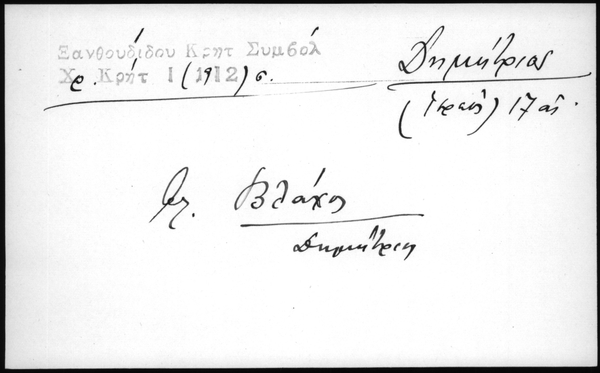 Ξανθουδίδου Κρητ Συμβόλ
Χρ. Κρήτ 1 (1912) σ.
Δημήτριος
(ἱερεὺς) 17 αἰ.
βλ. Βλάχος
Δημήτριος